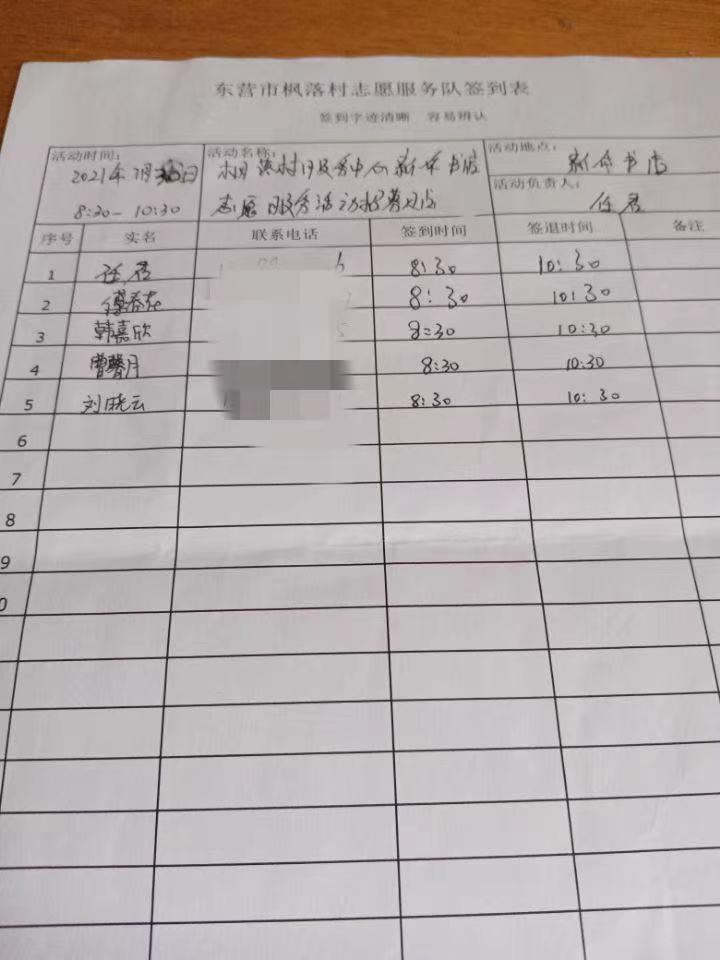 东营市枫落村志愿服务队签到表
签到字迹清晰 容易辨认
活动时间:
2021年7月 日
8:30-10:30
活动名称:
新华书店
志愿服务活动招募
活动地点:
新华书店
活动负责人:
任君
序号 实名 联系电话 签到时间 签退时间 备注
1 任君 8:30 10:30
2 8:30 10:30
3 韩嘉欣 8:30 10:30
4 曹馨月 8:30 10:30
5 刘晓云 8:30 10:30
6
7
8
9
0